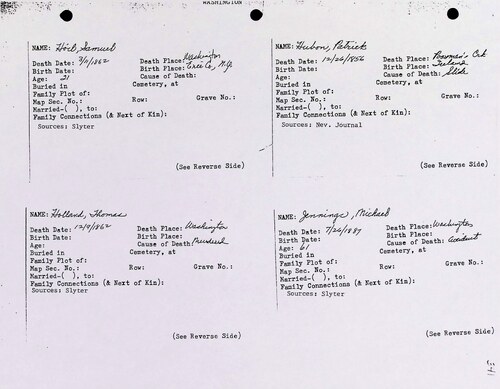 WASHINGTON
NAME: Hoel, Samuel
Death Date: 3/11/1862 Death Place: Washington
Birth Date: Birth Place: Erie Co., N.Y.
Age: 21 Cause of Death:
Buried in Cemetery, at
Family Plot of:
Map Sec. No.: Row: Grave No.:
Married-( ), to:
Family Connections (& Next of Kin):
Sources: Slyter
(See Reverse Side)
NAME: Hubon, Patrick
Death Date: 12/26/1856 Death Place: Poorman's Crk
Birth Date: Birth Place: Ireland
Age: Cause of Death: Slide
Buried in Cemetery, at
Family Plot of:
Map Sec. No.: Row: Grave No.:
Married-( ), to:
Family Connections (& Next of Kin):
Sources: Nev. Journal
(See Reverse Side)
NAME: Holland, Thomas
Death Date: 12/9/1862 Death Place: Washington
Birth Date: Birth Place:
Age: Cause of Death: Murdered
Buried in Cemetery, at
Family Plot of:
Map Sec. No.: Row: Grave No.:
Married-( ), to:
Family Connections (& Next of Kin):
Sources: Slyter
(See Reverse Side)
NAME: Jennings, Michael
Death Date: 7/26/1887 Death Place: Washington
Birth Date: Birth Place:
Age: 61 Cause of Death: Accident
Buried in Cemetery, at
Family Plot of:
Map Sec. No.: Row: Grave No.:
Married-( ), to:
Family Connections (& Next of Kin):
Sources: Slyter
(See Reverse Side)